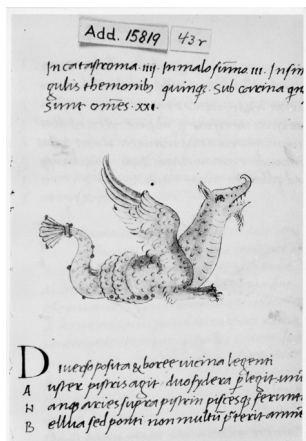 Add. 15819 43r
In catastroma. IIII. In malo sũmo. III. In sin
gulis themonibꝫ quinqꝫ. Sub carina
Sunt oм̃es. XXI.
Diuerso posita & boree uicina legenti
A uster pistris agit. duo sydera
N anqꝫ aries supra pistrin piscesqꝫ ferunt
B ellua sed ponti non multũ